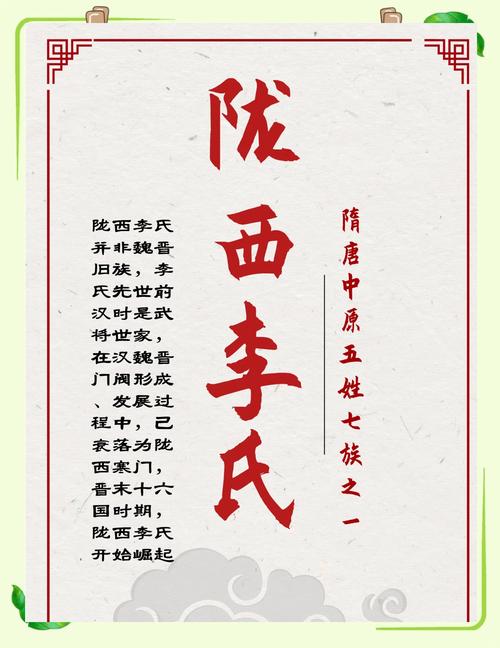 陇西李氏
隋唐中原五姓七族之一
陇西李氏
并非魏晋
旧族，李
氏先世前
汉时是武
将世家，
在汉魏晋
门阀形成
、发展过
程中，己
衰落为陇
西寒门，
晋末十六
国时期，
陇西李氏
开始崛起